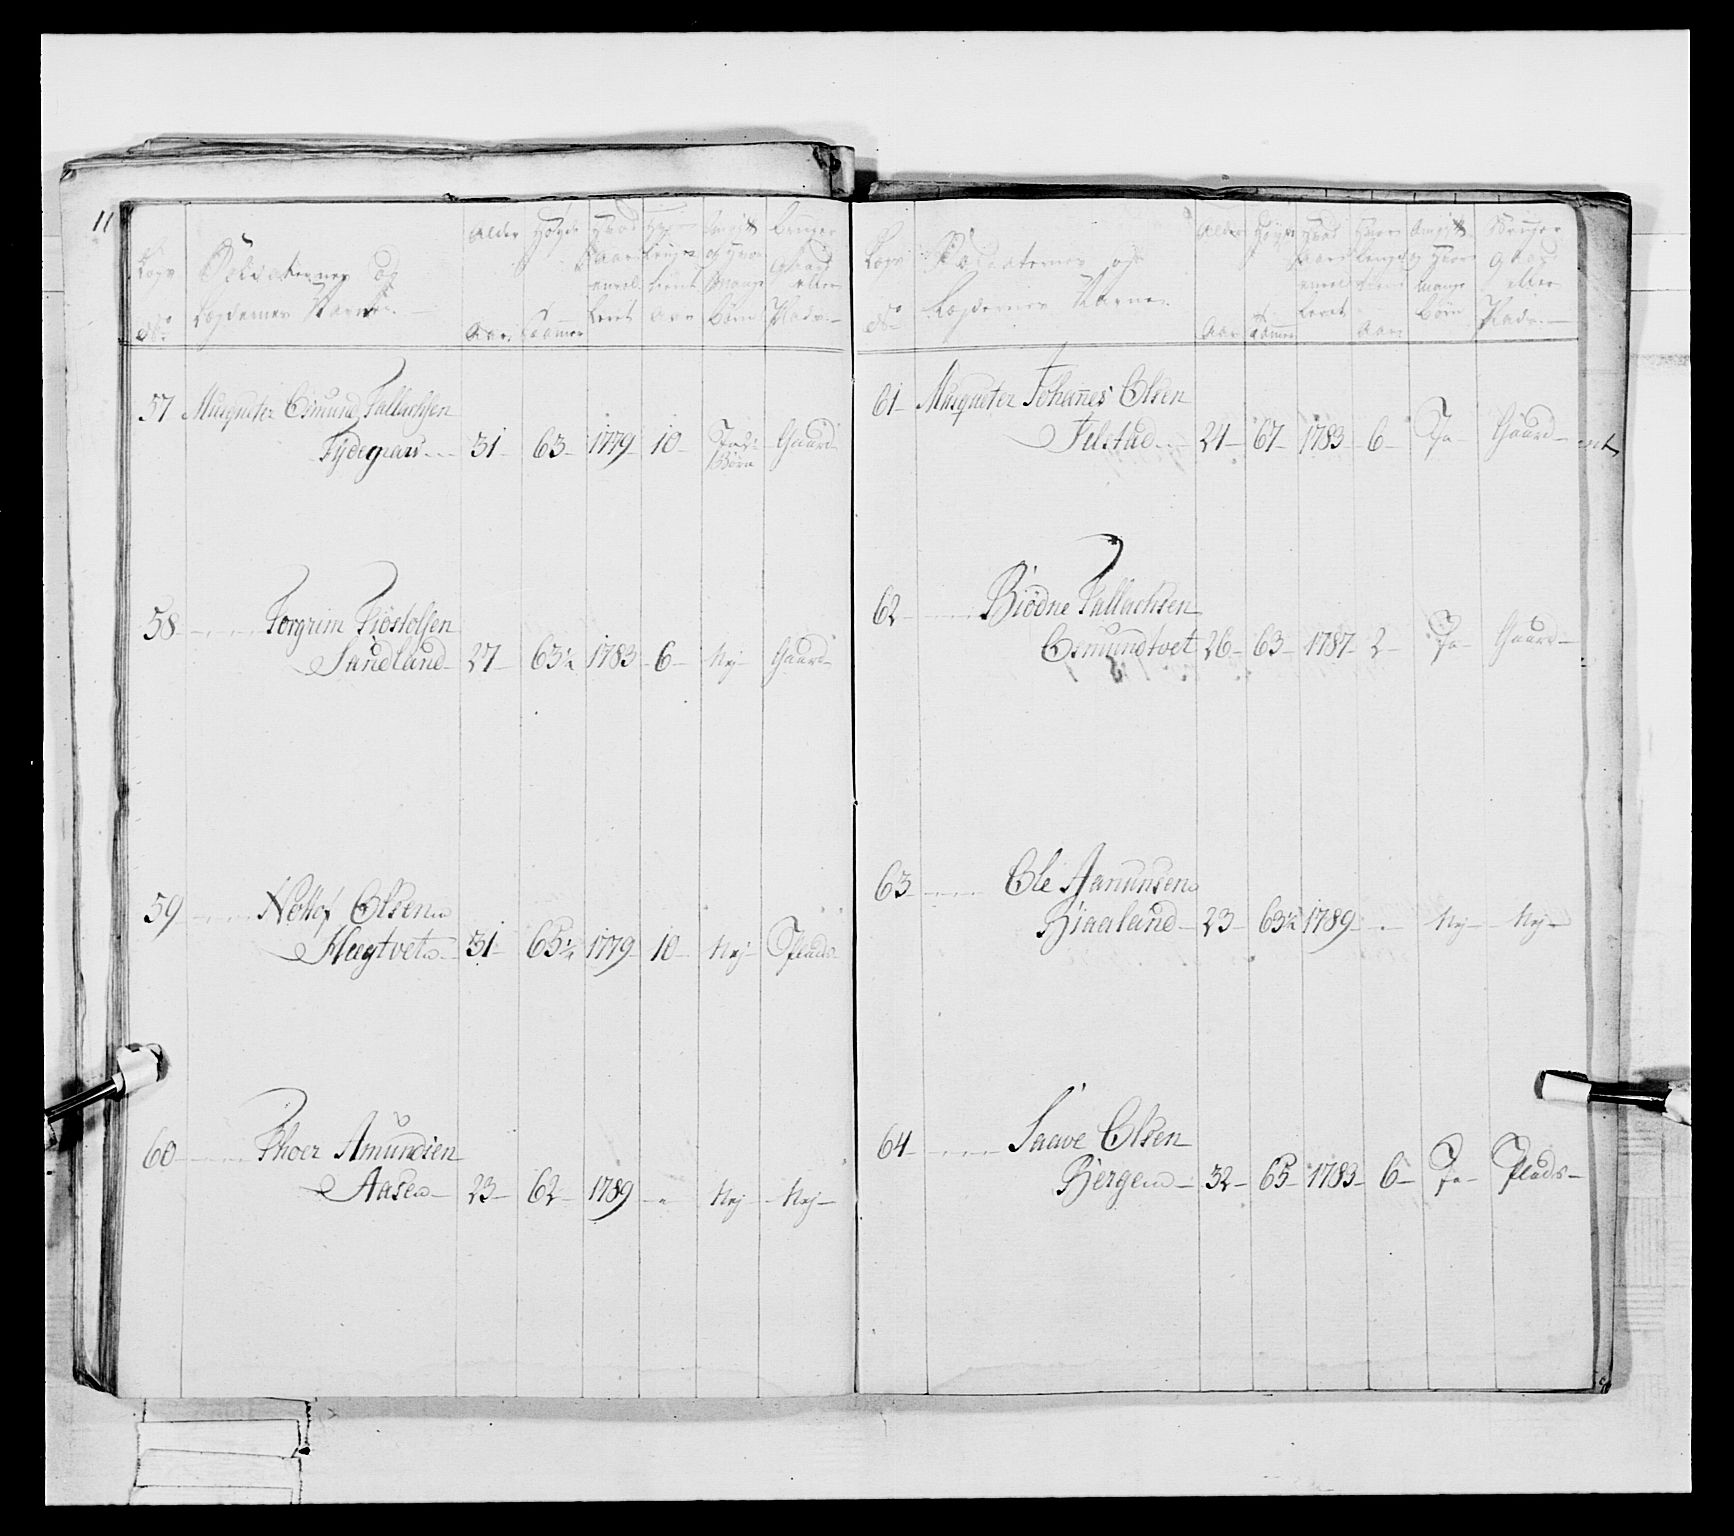 11
Lægs
No
Soldaternes og
Lægdernes Navne.
Alder
Aar.
Høyde
Tommer
Hvad
Aar
enrol
leret
tient
Aar
og Hvor
Mange
børn
bruger
gaard
eller
Plads.
57 Musqueter Osmund Tallachsen
31 63 1779 10 Ja 2 Børn Gaard
58 Torgrim Tiøstolfsen
Sandland 27 63½ 1783 6 Nej Gaard
59 Nottof Olsen
Hugtvet 31 65½ 1779 10 Nej Plads
60 Thoer Amundsen
Aase 23 62 1789 Nej Nej
Lægs
No
Soldaternes og
Lægdernes Navne.
Alder
Aar
Høyde
Tommer
Hvad
Aar
enrol
leret
Hvor
længe
tient
Aar
og Hvor
mange
børn
Bruger
gaard
eller
Plads.
61 Musqueter Johannes Olsen
Jelstad 24 67 1783 6 Ja Gaard
62 Biødne Tallachsen
Osmundtvet 26 63 1787 2 Ja Gaard
63 Ole Aanunsen
Biaaland 23 63½ 1789 Nej Nej
64 Saave Olsen
Berge 32 65 1783 6 Ja Plads